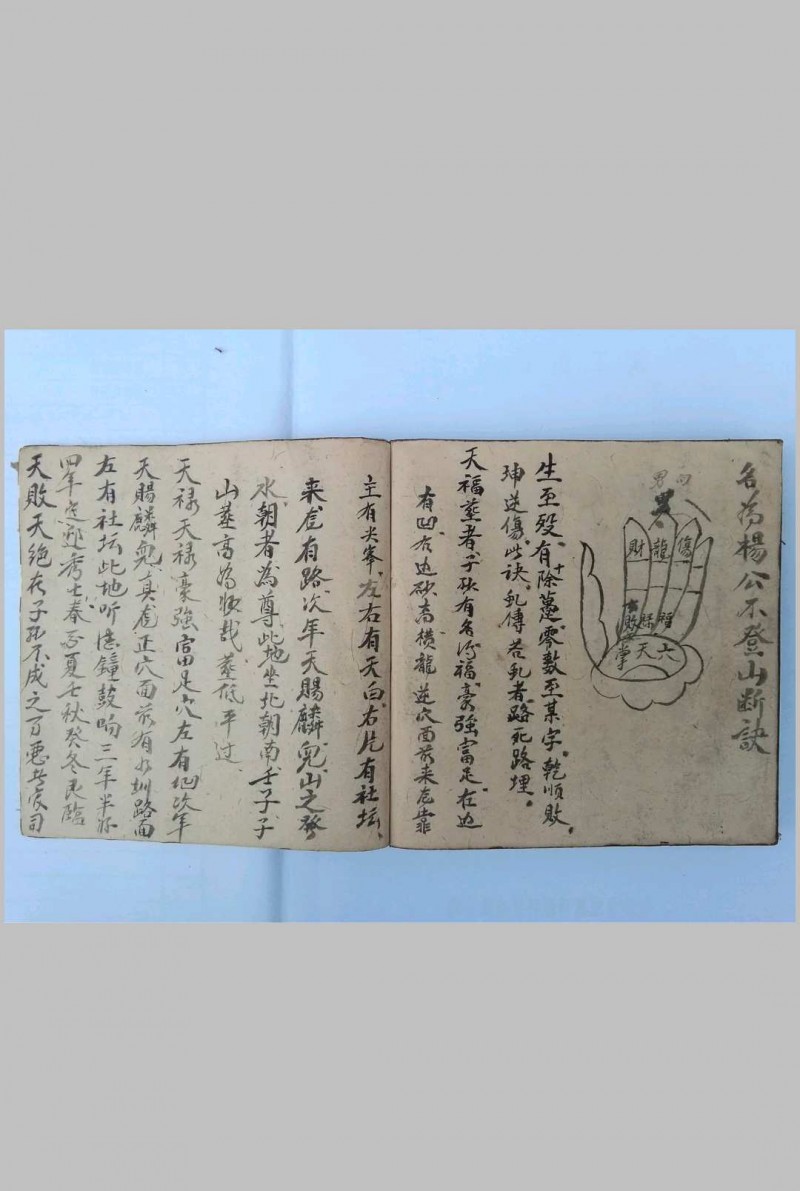 名为楊公不登山断訣
傷
龍
財
福
禄
敗
六天掌
生至殁有除十薹零数至某字乾順敗
坤逆傷此訣乱傳若乱者路死路埋
天福塟者子孫有名福豪強富足右边
有凹右边砂高橫龍逆穴面前来龙靠
主有尖峯左右有天白右片有社坛
来龙有路次年天賜麟兒山之發
水朝者為尊此地坐北朝南壬子子
山塟高為塟低平过
天禄天禄豪強富足穴左有凹次年
天賜麟兒真龙正穴面前有水圳路面
左有社坛此地听鐘鼓响三年半
四年迎秀士春夏七秋癸冬臨
天敗天绝在子孫不成之百悪官司